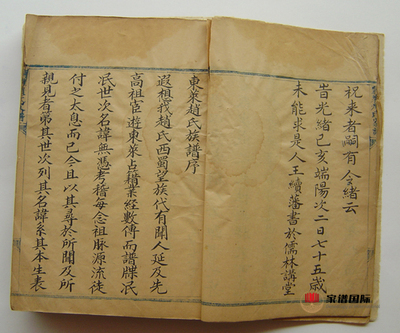 祝来者嗣有令緒云
旹光緒己亥端陽次二日七十五歲
未能求是人王續藩書於儒林講堂
東萊趙氏族譜序
遐想我趙氏西蜀望族代有聞人延及先
高祖宦遊東萊占籍業經數傳而譜牒泯
泯世次名諱無憑考稽每念祖脉源流徒
付之太息而已今且以其尋於所聞及所
親見者弟其世次列其名諱系其本生表
家谱国际